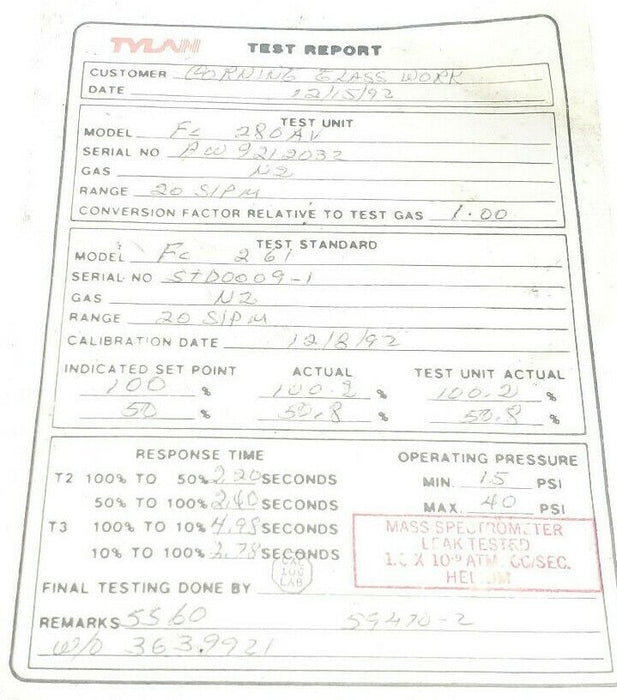 TYLAN TEST REPORT
CUSTOMER CORNING GLASS WORK
DATE 12/15/92
TEST UNIT
MODEL FC 280AV
SERIAL NO AW9212032
GAS N2
RANGE 20 SLPM
CONVERSION FACTOR RELATIVE TO TEST GAS 1.00
TEST STANDARD
MODEL FC 261
SERIAL NO STD0009-1
GAS N2
RANGE 20 SLPM
CALIBRATION DATE 12/8/92
INDICATED SET POINT ACTUAL TEST UNIT ACTUAL
100 % 100.2 % 100.2 %
50 % 50.8 % 50.8 %
RESPONSE TIME OPERATING PRESSURE
T2 100% TO 50% 2.20 SECONDS MIN. 15 PSI
50% TO 100% 2.40 SECONDS MAX. 40 PSI
T3 100% TO 10% 4.98 SECONDS
10% TO 100% 2.78 SECONDS
MASS SPECTROMETER
LEAK TESTED
1.0 X 10-9 ATM. CC/SEC.
HELIUM
CAL
106
LAB
FINAL TESTING DONE BY
REMARKS 5560 59470-2
W/O 363.9921